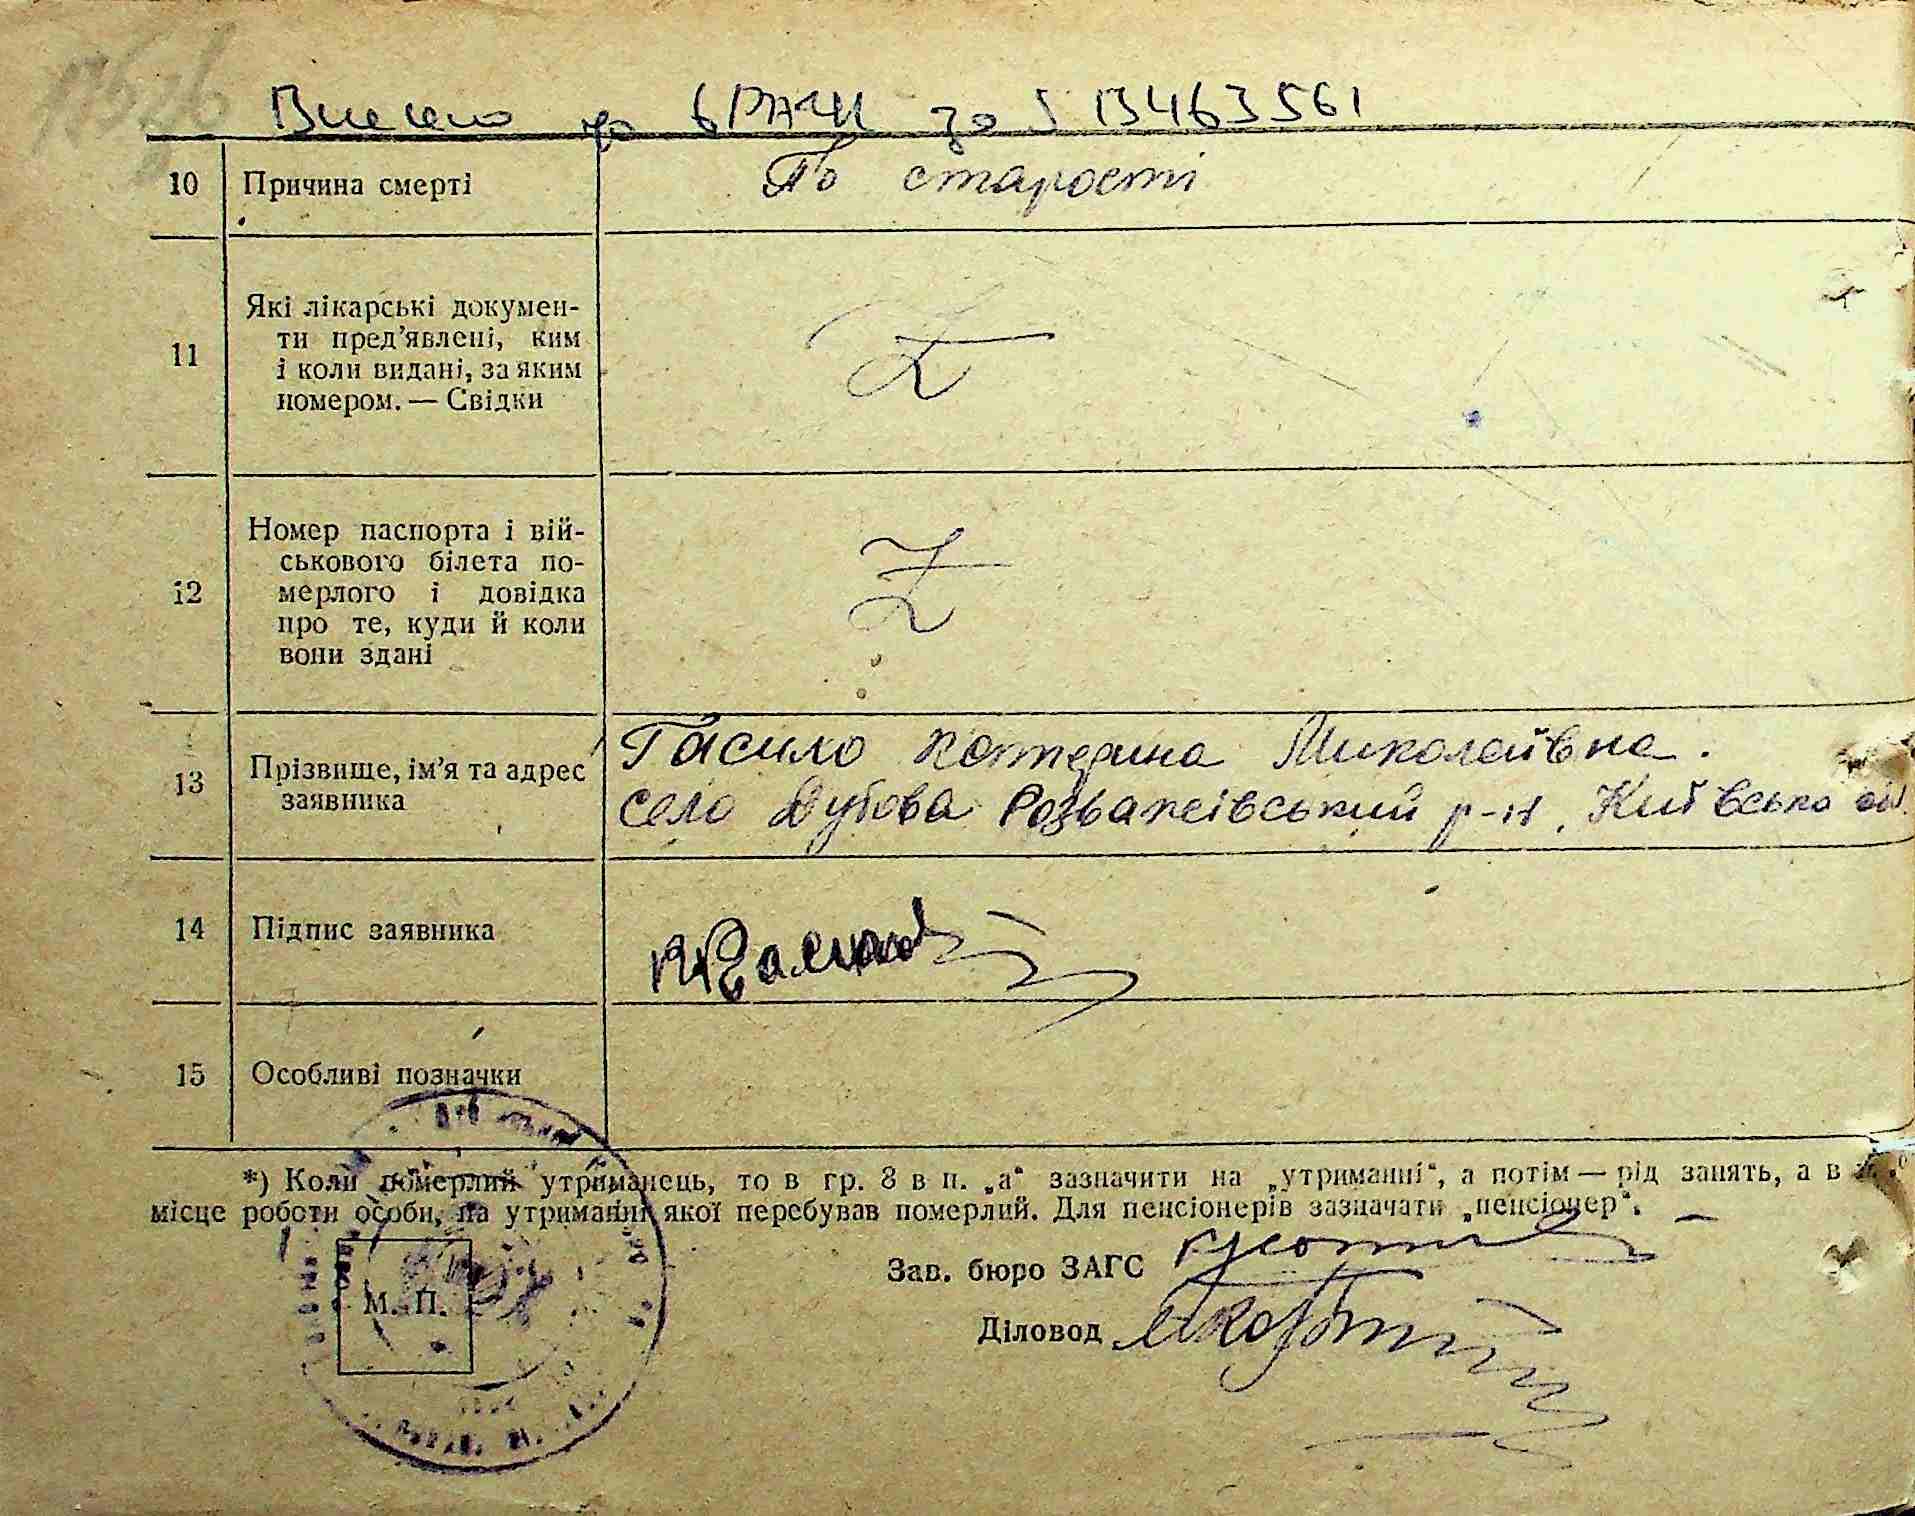 Внесено до
10 Причина смерті По старості
11 Які лікарські докумен-
ти пред’явлені, ким
і коли видані, за яким
номером. — Свідки
12 Номер паспорта і вій-
ськового білета по-
мерлого і довідка
про те, куди й коли
вони здані
Гасило Катерина Миколаївна.
13 Прізвище, ім’я та адрес
заявника
село Дубова Розважівський р-н, Київсько
14 Підпис заявника
15 Особливі позначки
*) Коли померлий утриманець, то в гр. 8 в п. „а“ зазначити на „утриманні“, а потім — рід занять, а в
місце роботи особи, на утриманні якої перебував померлий. Для пенсіонерів зазначати „пенсіонер“.
Зав. бюро ЗАГС
М. П.
Діловод